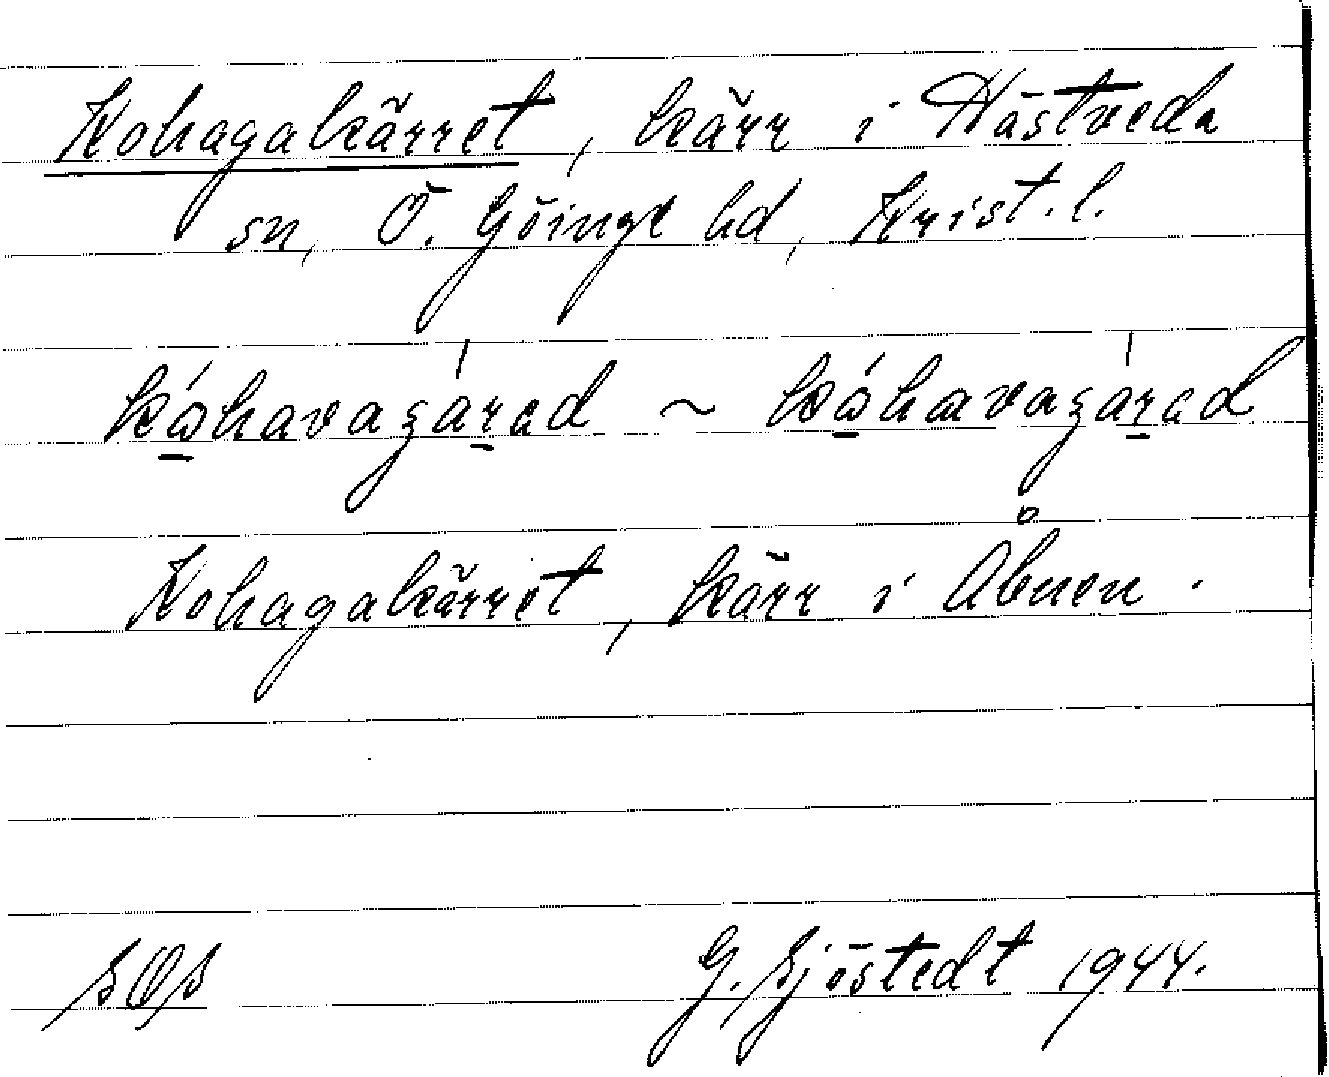 Kohagakärret, kärr i Hästveda
sn, Ö. Göinge hd, Krist. l.
kóhavagárad ~ kóhavagárad
Kohagakärret, kärr i Åbuen.
SOS
G. Sjöstedt 1944.